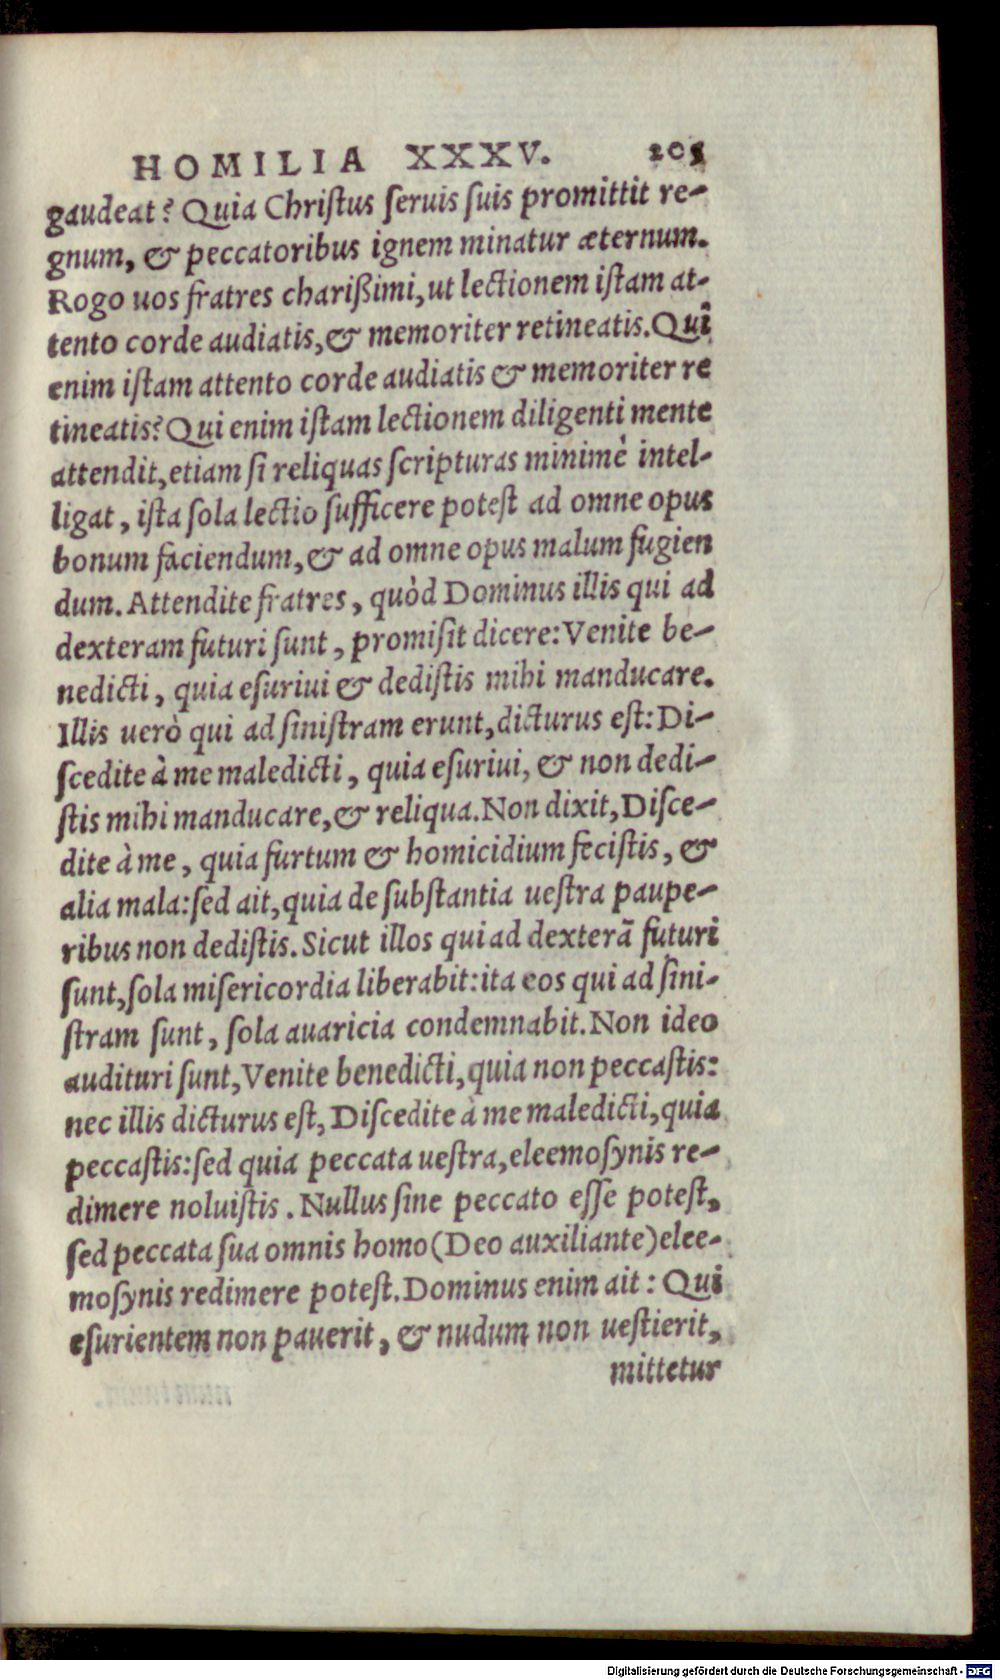 HOMILIA XXXV. 205
gaudeat? Quia Chriſtus ſeruis ſuis promittit re-
gnum, & peccatoribus ignem minatur æternum.
Rogo uos fratres charißimi, ut lectionem iſtam at-
tento corde audiatis, & memoriter retineatis. Quî
enim iſtam attento corde audiatis & memoriter re
tineatis? Qui enim iſtam lectionem diligenti mente
attendit, etiam ſi reliquas ſcripturas minimè intel-
ligat, iſta ſola lectio ſufficere poteſt ad omne opus
bonum faciendum, & ad omne opus malum fugien
dum. Attendite fratres, quòd Dominus illis qui ad
dexteram futuri ſunt, promiſit dicere: Venite be-
nedicti, quia eſuriui & dediſtis mihi manducare.
Illis uerò qui ad ſiniſtram erunt, dicturus eſt: Di-
ſcedite à me maledicti, quia eſuriui, & non dedi-
ſtis mihi manducare, & reliqua. Non dixit, Diſce-
dite à me, quia furtum & homicidium feciſtis, &
alia mala: ſed ait, quia de ſubſtantia ueſtra paupe-
ribus non dediſtis. Sicut illos qui ad dexterã futuri
ſunt, ſola miſericordia liberabit: ita eos qui ad ſini-
ſtram ſunt, ſola auaricia condemnabit. Non ideo
audituri ſunt, Venite benedicti, quia non peccaſtis:
nec illis dicturus eſt, Diſcedite à me maledicti, quia
peccaſtis: ſed quia peccata ueſtra, eleemoſynis re-
dimere noluiſtis. Nullus ſine peccato eſſe poteſt,
ſed peccata ſua omnis homo (Deo auxiliante) elee-
moſynis redimere poteſt. Dominus enim ait: Qui
eſurientem non pauerit, & nudum non ueſtierit,
mittetur
Digitalisierung gefördert durch die Deutsche Forschungsgemeinschaft - DFG